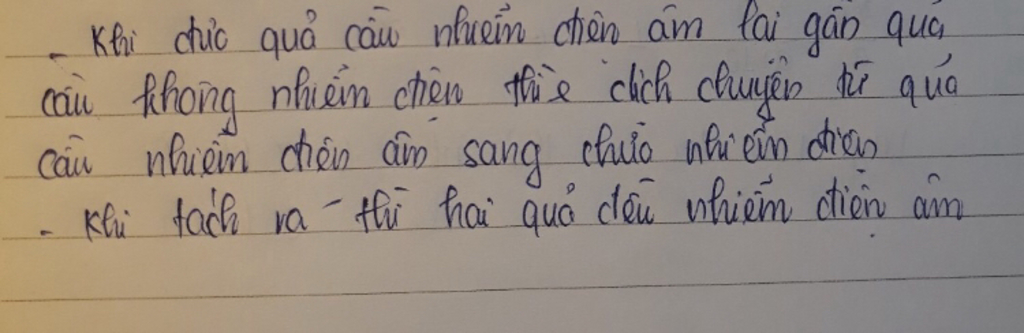 - Khi đưa quả cầu nhiễm điện âm lại gần quả
cầu không nhiễm điện thì e dịch chuyển từ quả
cầu nhiễm điện âm sang chưa nhiễm điện
- Khi tách ra thì hai quả đều nhiễm điện âm